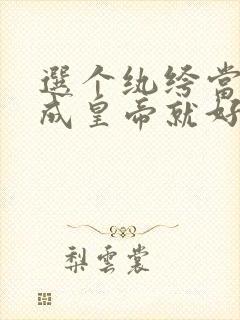 選个纨绔當
成皇帝就好
梨雲裳